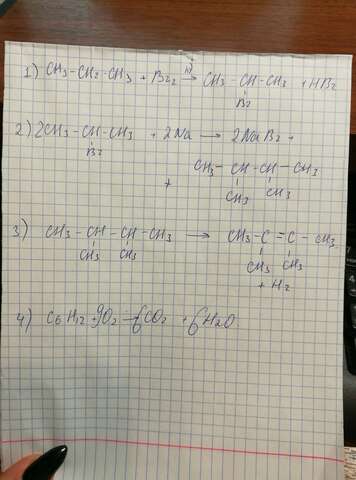 1) CH3-CH2-CH3 + Br2 hν→ CH3-CH-CH3 + HBr
Br
2) 2CH3-CH-CH3 + 2Na → 2NaBr +
Br
+ CH3-CH-CH-CH3
CH3 CH3
3) CH3-CH-CH-CH3 → CH3-C=C-CH3
CH3 CH3 CH3 CH3
+ H2
4) C6H12 + 9O2 = 6CO2 + 6H2O